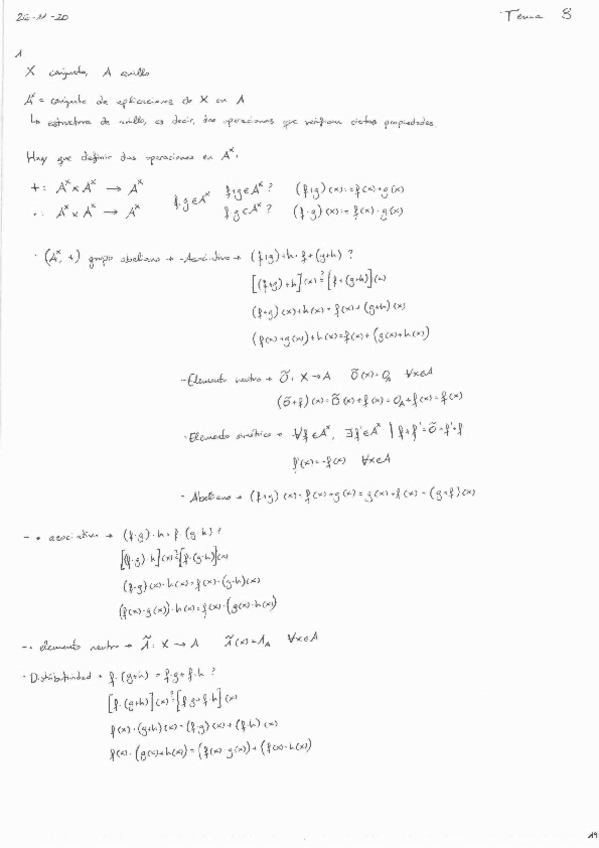 26-11-20 Tema 3
1
X conjunto, A anillo
Aˣ = conjunto de aplicaciones de X en A
↳ estructura de anillo, es decir, dos operaciones que verifican ciertas propiedades.
Hay que definir dos operaciones en Aˣ:
+: Aˣ × Aˣ → Aˣ f,g ∈ Aˣ f+g ∈ Aˣ? (f+g)(x) := f(x)+g(x)
·: Aˣ × Aˣ → Aˣ f·g ∈ Aˣ? (f·g)(x) := f(x)·g(x)
· (Aˣ, +) grupo abeliano → -Asociativo → (f+g)+h = f+(g+h) ?
[(f+g)+h](x) ?= [f+(g+h)](x)
(f+g)(x)+h(x) = f(x)+(g+h)(x)
(f(x)+g(x))+h(x) = f(x)+(g(x)+h(x))
-Elemento neutro → Õ: X → A Õ(x) = 0_A ∀x∈A
(Õ+f)(x) = Õ(x)+f(x) = 0_A+f(x) = f(x)
-Elemento simétrico → ∀f∈Aˣ, ∃f'∈Aˣ | f+f' = Õ = f'+f
f'(x) = -f(x) ∀x∈A
-Abeliano → (f+g)(x) = f(x)+g(x) = g(x)+f(x) = (g+f)(x)
- · asociativa → (f·g)·h = f·(g·h) ?
[(f·g)·h](x) ?= [f·(g·h)](x)
(f·g)(x)·h(x) = f(x)·(g·h)(x)
(f(x)·g(x))·h(x) = f(x)·(g(x)·h(x))
- · elemento neutro → 1̃: X → A 1̃(x) = 1_A ∀x∈A
· Distributividad → f·(g+h) = f·g+f·h ?
[f·(g+h)](x) ?= [f·g+f·h](x)
f(x)·(g+h)(x) = (f·g)(x)+(f·h)(x)
f(x)·(g(x)+h(x)) = (f(x)·g(x))+(f(x)·h(x))
19